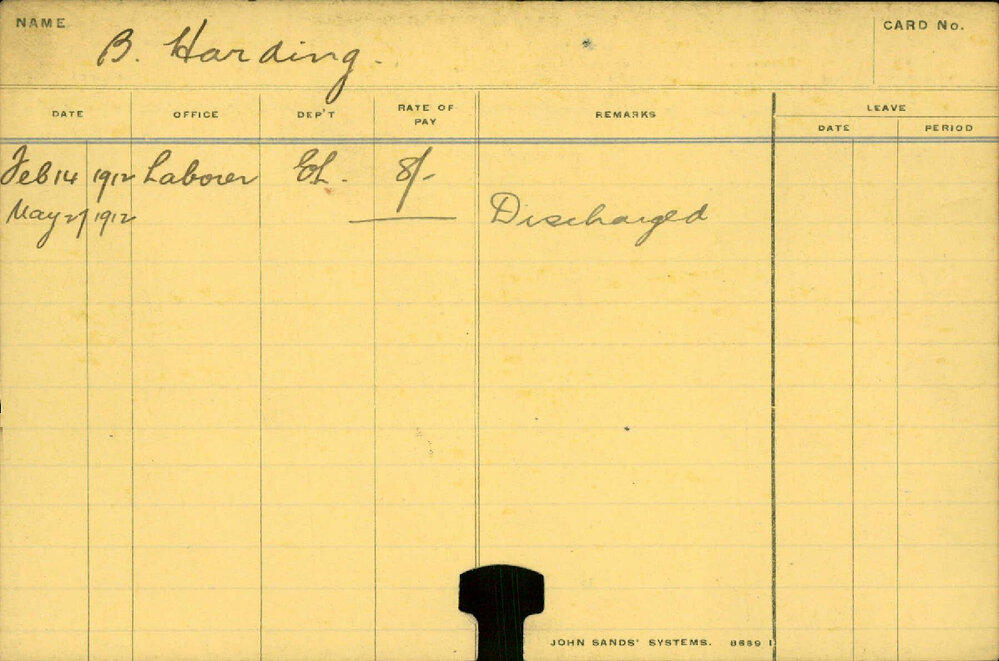 NAME B. Harding. CARD No.
DATE OFFICE DEP'T RATE OF PAY REMARKS LEAVE
DATE PERIOD
Feb 14 1912 Laborer EL. 8/-
May 27 1912 Discharged
JOHN SANDS' SYSTEMS. 8689 1